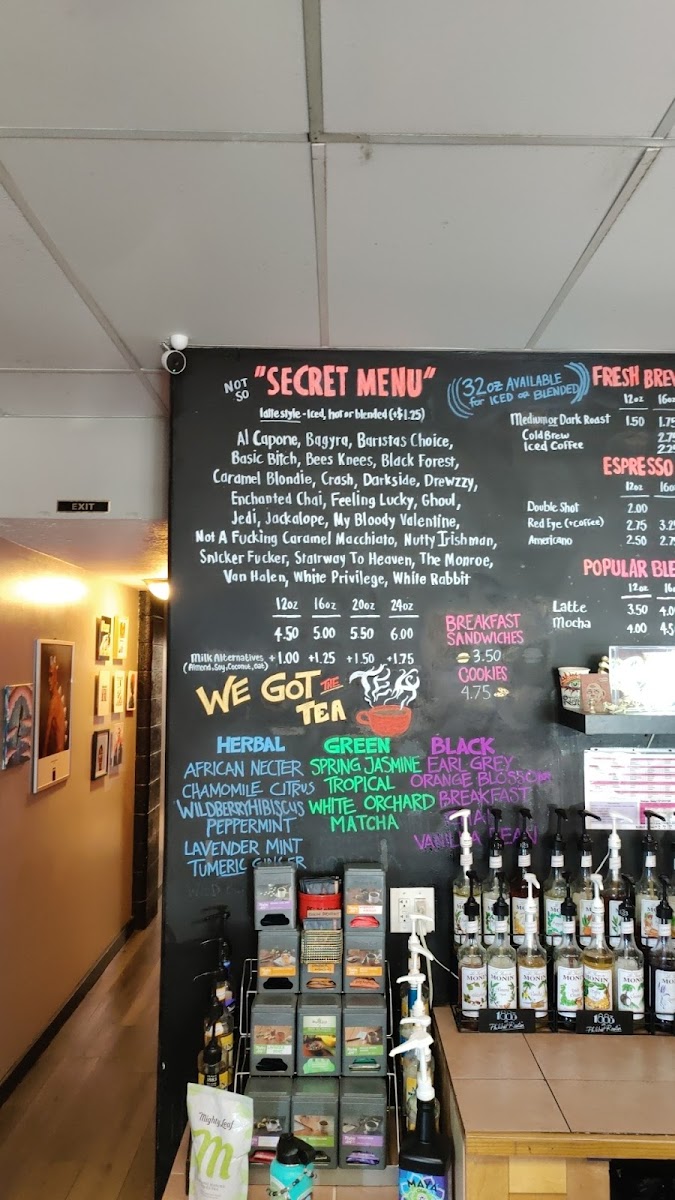 NOT SO "SECRET MENU"
latte style - Iced, hot or blended (+$1.25)
Al Capone, Bagyra, Baristas Choice,
Basic Bitch, Bees Knees, Black Forest,
Caramel Blondie, Crash, Darkside, Drewzzy,
Enchanted Chai, Feeling Lucky, Ghoul,
Jedi, Jackalope, My Bloody Valentine,
Not A Fucking Caramel Macchiato, Nutty Irishman,
Snicker Fucker, Stairway To Heaven, The Monroe,
Van Halen, White Privilege, White Rabbit
12oz 16oz 20oz 24oz
4.50 5.00 5.50 6.00
Milk Alternatives +1.00 +1.25 +1.50 +1.75
(Almond, Soy, Coconut, Oat)
32oz AVAILABLE
for ICED OR BLENDED
FRESH BREW
12oz 16oz
Medium or Dark Roast 1.50 1.75
Cold Brew 2.75
Iced Coffee 2.25
ESPRESSO
12oz 16o
Double Shot 2.00
Red Eye (+Coffee) 2.75 3.25
Americano 2.50 2.75
POPULAR BLE
12oz 16
Latte 3.50 4.0
Mocha 4.00 4.5
BREAKFAST
SANDWICHES
3.50
COOKIES
4.75
WE GOT THE
TEA
TEA
HERBAL
AFRICAN NECTER
CHAMOMILE CITRUS
WILDBERRY HIBISCUS
PEPPERMINT
LAVENDER MINT
TUMERIC GINGER
GREEN
SPRING JASMINE
TROPICAL
WHITE ORCHARD
MATCHA
BLACK
EARL GREY
ORANGE BLOSSOM
BREAKFAST
VANILLA BEAN
EXIT
MONIN
MONIN
MONIN
MONIN
MONIN
MONIN
1883
1883
Mighty Leaf
M
MAYA